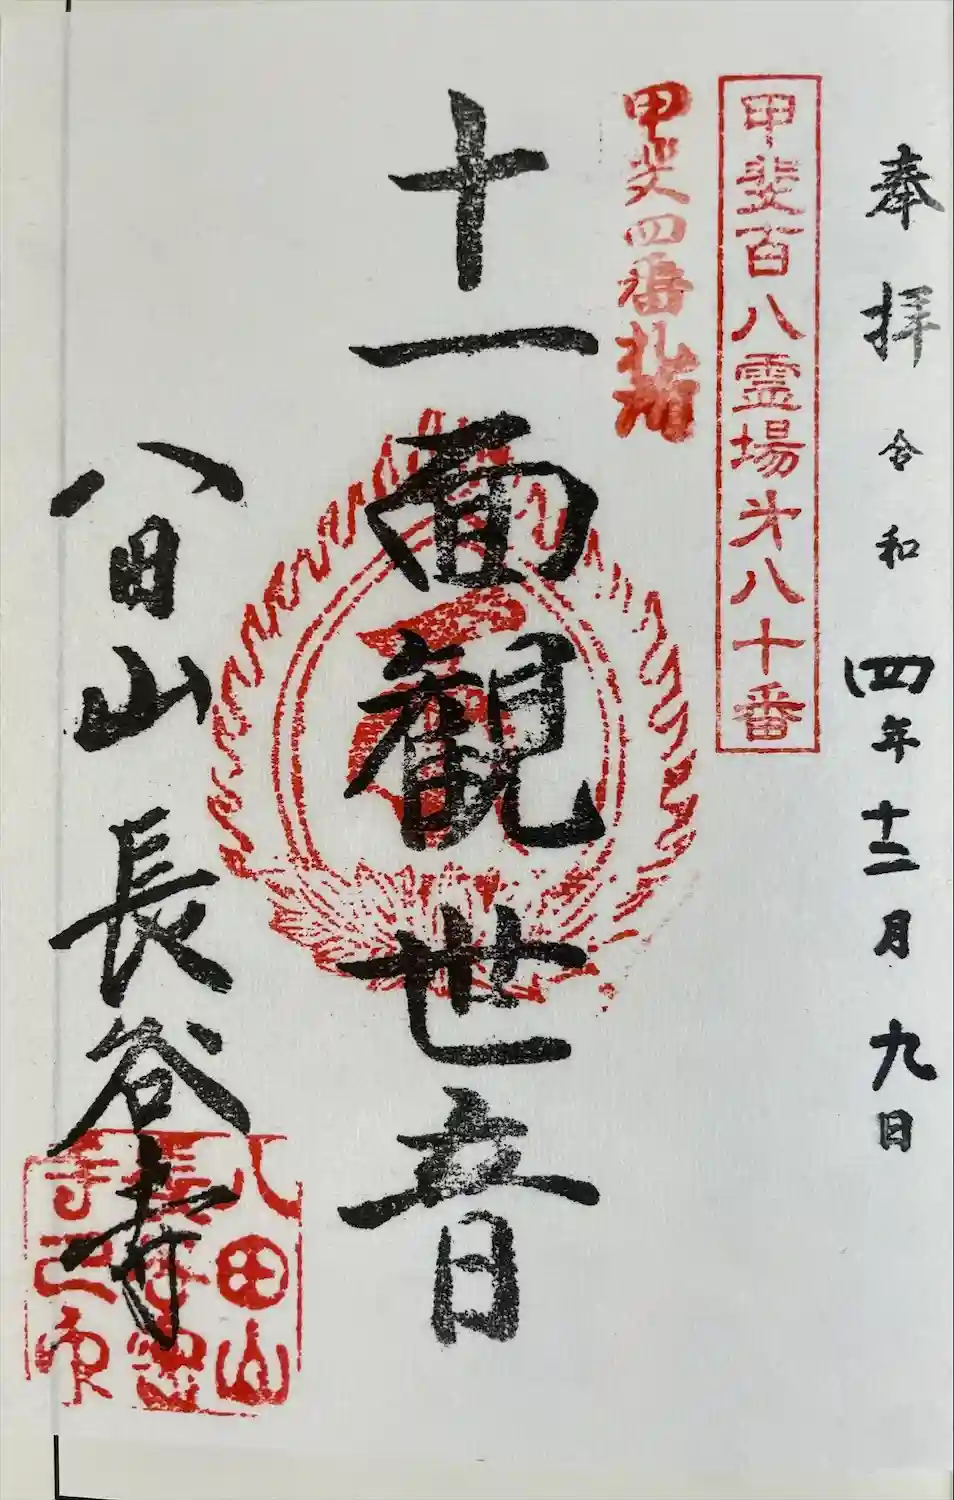 奉拝 令和四年十二月九日
甲斐百八霊場㐧八十番
甲斐四番札所
十一面観世音
八田山 長谷寺
八田山
寺之印